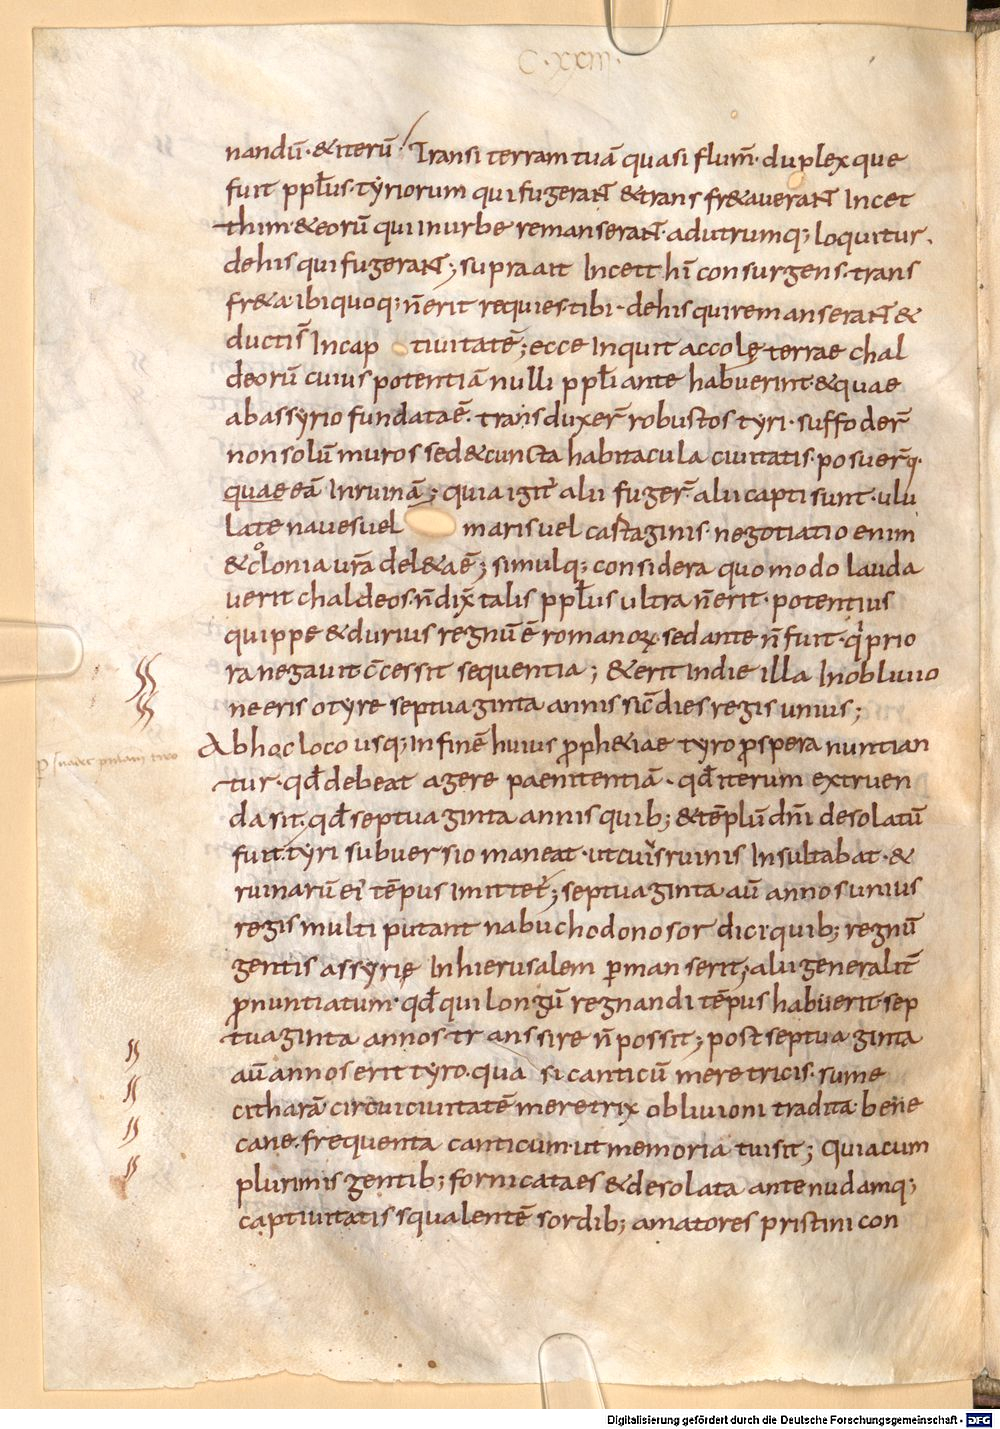 C·XXIII·
nandū·&iterū·Transi terram tuā quasi flum̄·duplex que
fuit pp̄lus·tyriorum qui fugerant &trans fr&auerant Incet
thim·&eorū qui Inurbe remanserant·adutrumq; loquitur·
dehis qui fugerant; supra ait Incetthī consurgens·trans
fr&a·ibi quoq; n̄ erit requies tibi·dehis qui remanserant &
ductis̄ Incap tiuitatē; ecce Inquit accolę terrae chal
deorū cuius potentiā nulli pp̄li ante habuerint·&quae
abassyrio fundata ē·transduxer̄ robustos tyri·suffoder̄
nonsolū muros sed&cuncta habitacula ciuitatis·posuer̄q·
quae eā Inruinā; quia igit̄ alii fuger̄ alii capti sunt·ulu
late naues uel maris uel castaginis·negotiatio enim
&colonia ur̄a del&a ē; simulq; considera quomodo lauda
uerit chaldeos·n̄ dix̄ talis pp̄lus ultra n̄ erit·potentius
quippe &durius regnū ē romanoꝝ·sed ante n̄ fuit·q̇ prio
ra negauit c̄cessit sequentia; &erit Indie illa Inobliuio
ne eris o tyre septuaginta annis sic̄ dies regis unius;
Abhoc loco usq; Infinē huius ꝓph&iae tyro ꝓspera nuntian
tur·qđ debeat agere paenitentiā·qđ iterum extruen
da sit·qđ septuaginta annis quib; &tēplū dn̄i desolatū
fuit·tyri subuersio maneat·ut cuīs ruinis Insultabat·&
ruinarū ei' tēpus Imittet̄; septuaginta aū annos unius
regis multi putant nabuchodonosor dici·quib; regnū
gentis assyrię Inhierusalem ꝑmanserit; alii generalit̄
ꝓnuntiatum·qđ qui longū regnandi tēpus habuerit·sep
tuaginta annos·transsire n̄ possit; post septuaginta
aū annos erit tyro·quasi canticū meretricis·sume
citharā circui ciuitatē meretrix obliuioni tradita·bene
cane·frequenta canticum·ut memoria tui sit; Quia cum
plurimis gentib; fornicata es &desolata ante nudamq;
captiuitatis squalentē sordib; amatores pristini con
Digitalisierung gefördert durch die Deutsche Forschungsgemeinschaft - DFG